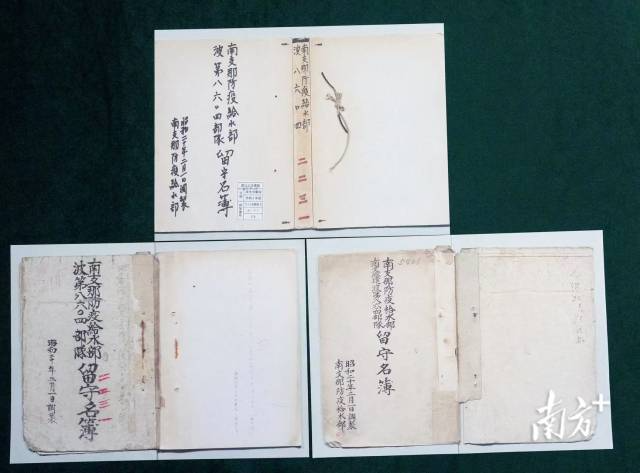 南支那防疫給水部
波第八六〇四部隊
留守名簿
昭和二十年二月一日調製
南支那防疫給水部
南支那防疫給水部
波八六〇四
二二三一
南支那防疫給水部
波第八六〇四部隊
留守名簿
二二三一
昭和二十年二月一日調製
南支那防疫給水部
留守名簿
昭和二十年二月一日調製
南支那防疫給水部
南方+